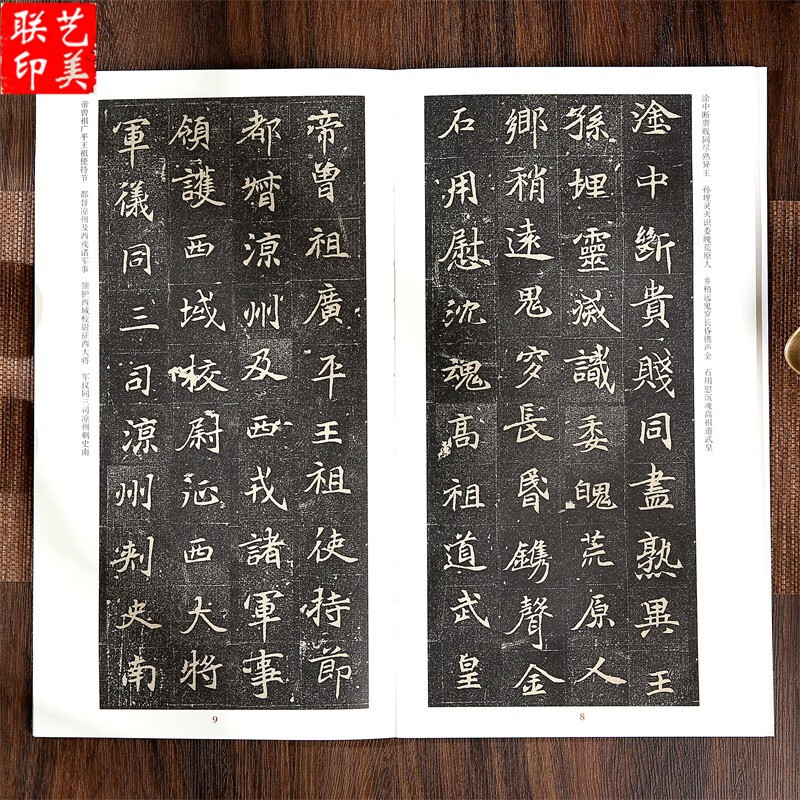 艺美
联印
涂中断贵贱同尽熟异王　孙埋灵灭识委魄荒原人　乡稍远鬼穸长昏镌声金　石用慰沉魂高祖道武皇
塗中斷貴賤同盡熟異王
孫埋靈滅識委魄荒原人
鄉稍遠鬼穸長昏鐫聲金
石用慰沈魂高祖道武皇
8
帝曾祖廣平王祖使持節
都督涼州及西戎諸軍事
領護西域校尉征西大將
軍儀同三司涼州刾史南
帝曾祖广平王祖使持节　都督凉州及西戎诸军事　领护西域校尉征西大将　军仪同三司凉州刺史南
9